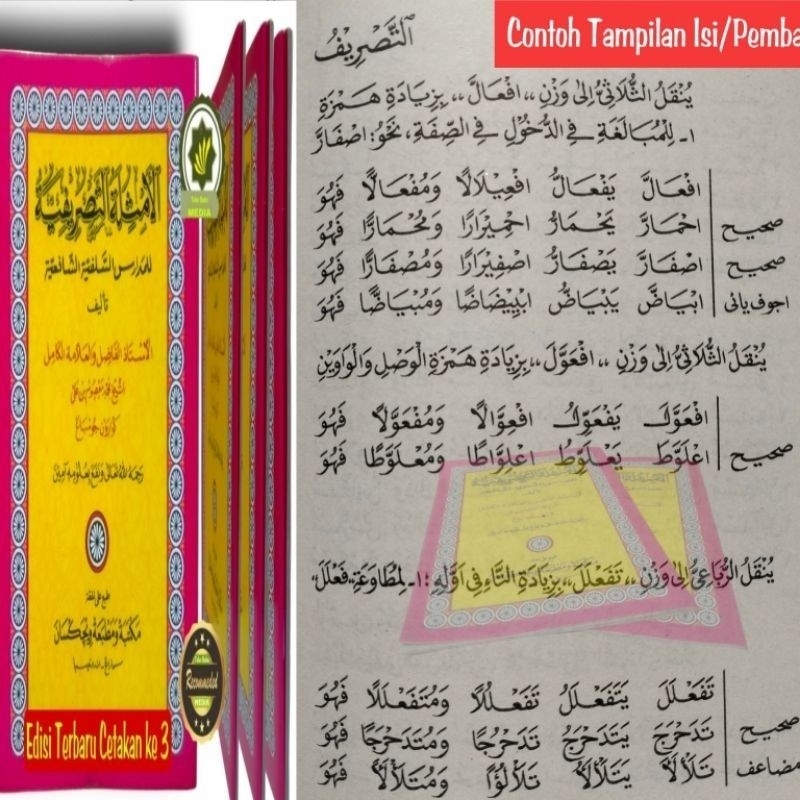 الأمثلة التصريفية
للمدارس السلفية الشافعية
تأليف
الأستاذ الفاضل والعلامة الكامل
الشيخ محمد معصوم بن علي
رحمه الله تعالى ونفع بعلومه آمين
Toko Buku
MEDIA
Recommended
MEDIA
Edisi Terbaru Cetakan ke 3
Contoh Tampilan Isi/Pemba
التَّصْرِيْفُ
يُنْقَلُ الثُّلَاثِيُّ اِلٰى وَزْنِ ،، افْعَالَّ ،، بِزِيَادَةِ هَمْزَةِ
١ـ لِلْمُبَالَغَةِ فِي الدُّخُوْلِ فِي الصِّفَةِ، نَحْوُ: اصْفَارَّ
افْعَالَّ يَفْعَالُّ افْعِيْلَالًا وَمُفْعَالًّا فَهُوَ
صحيح احْمَارَّ يَحْمَارُّ احْمِيْرَارًا وَمُحْمَارًّا فَهُوَ
صحيح اصْفَارَّ يَصْفَارُّ اصْفِيْرَارًا وَمُصْفَارًّا فَهُوَ
اجوف يائى ابْيَاضَّ يَبْيَاضُّ ابْيِيْضَاضًا وَمُبْيَاضًّا فَهُوَ
يُنْقَلُ الثُّلَاثِيُّ اِلٰى وَزْنِ ،، افْعَوَّلَ ،، بِزِيَادَةِ هَمْزَةِ الْوَصْلِ وَالْوَاوَيْنِ
افْعَوَّلَ يَفْعَوِّلُ افْعِوَّالًا وَمُفْعَوَّلًا فَهُوَ
صحيح اعْلَوَّطَ يَعْلَوِّطُ اعْلِوَّاطًا وَمُعْلَوَّطًا فَهُوَ
يُنْقَلُ الرُّبَاعِيُّ اِلٰى وَزْنِ ،، تَفَعْلَلَ ،، بِزِيَادَةِ التَّاءِ فِى اَوَّلِهِ : ١ـ لِمُطَاوَعَةِ ،، فَعْلَلَ ،،
تَفَعْلَلَ يَتَفَعْلَلُ تَفَعْلُلًا وَمُتَفَعْلَلًا فَهُوَ
صحيح تَدَحْرَجَ يَتَدَحْرَجُ تَدَحْرُجًا وَمُتَدَحْرَجًا فَهُوَ
مضاعف تَلَأْلَأَ يَتَلَأْلَأُ تَلَأْلُؤًا وَمُتَلَأْلَأً فَهُوَ